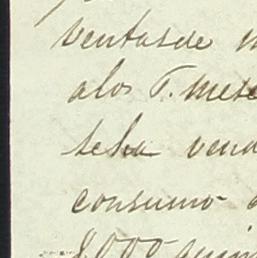 ventasde
alos 6. mese
seha vend
consumo
8,000 quin